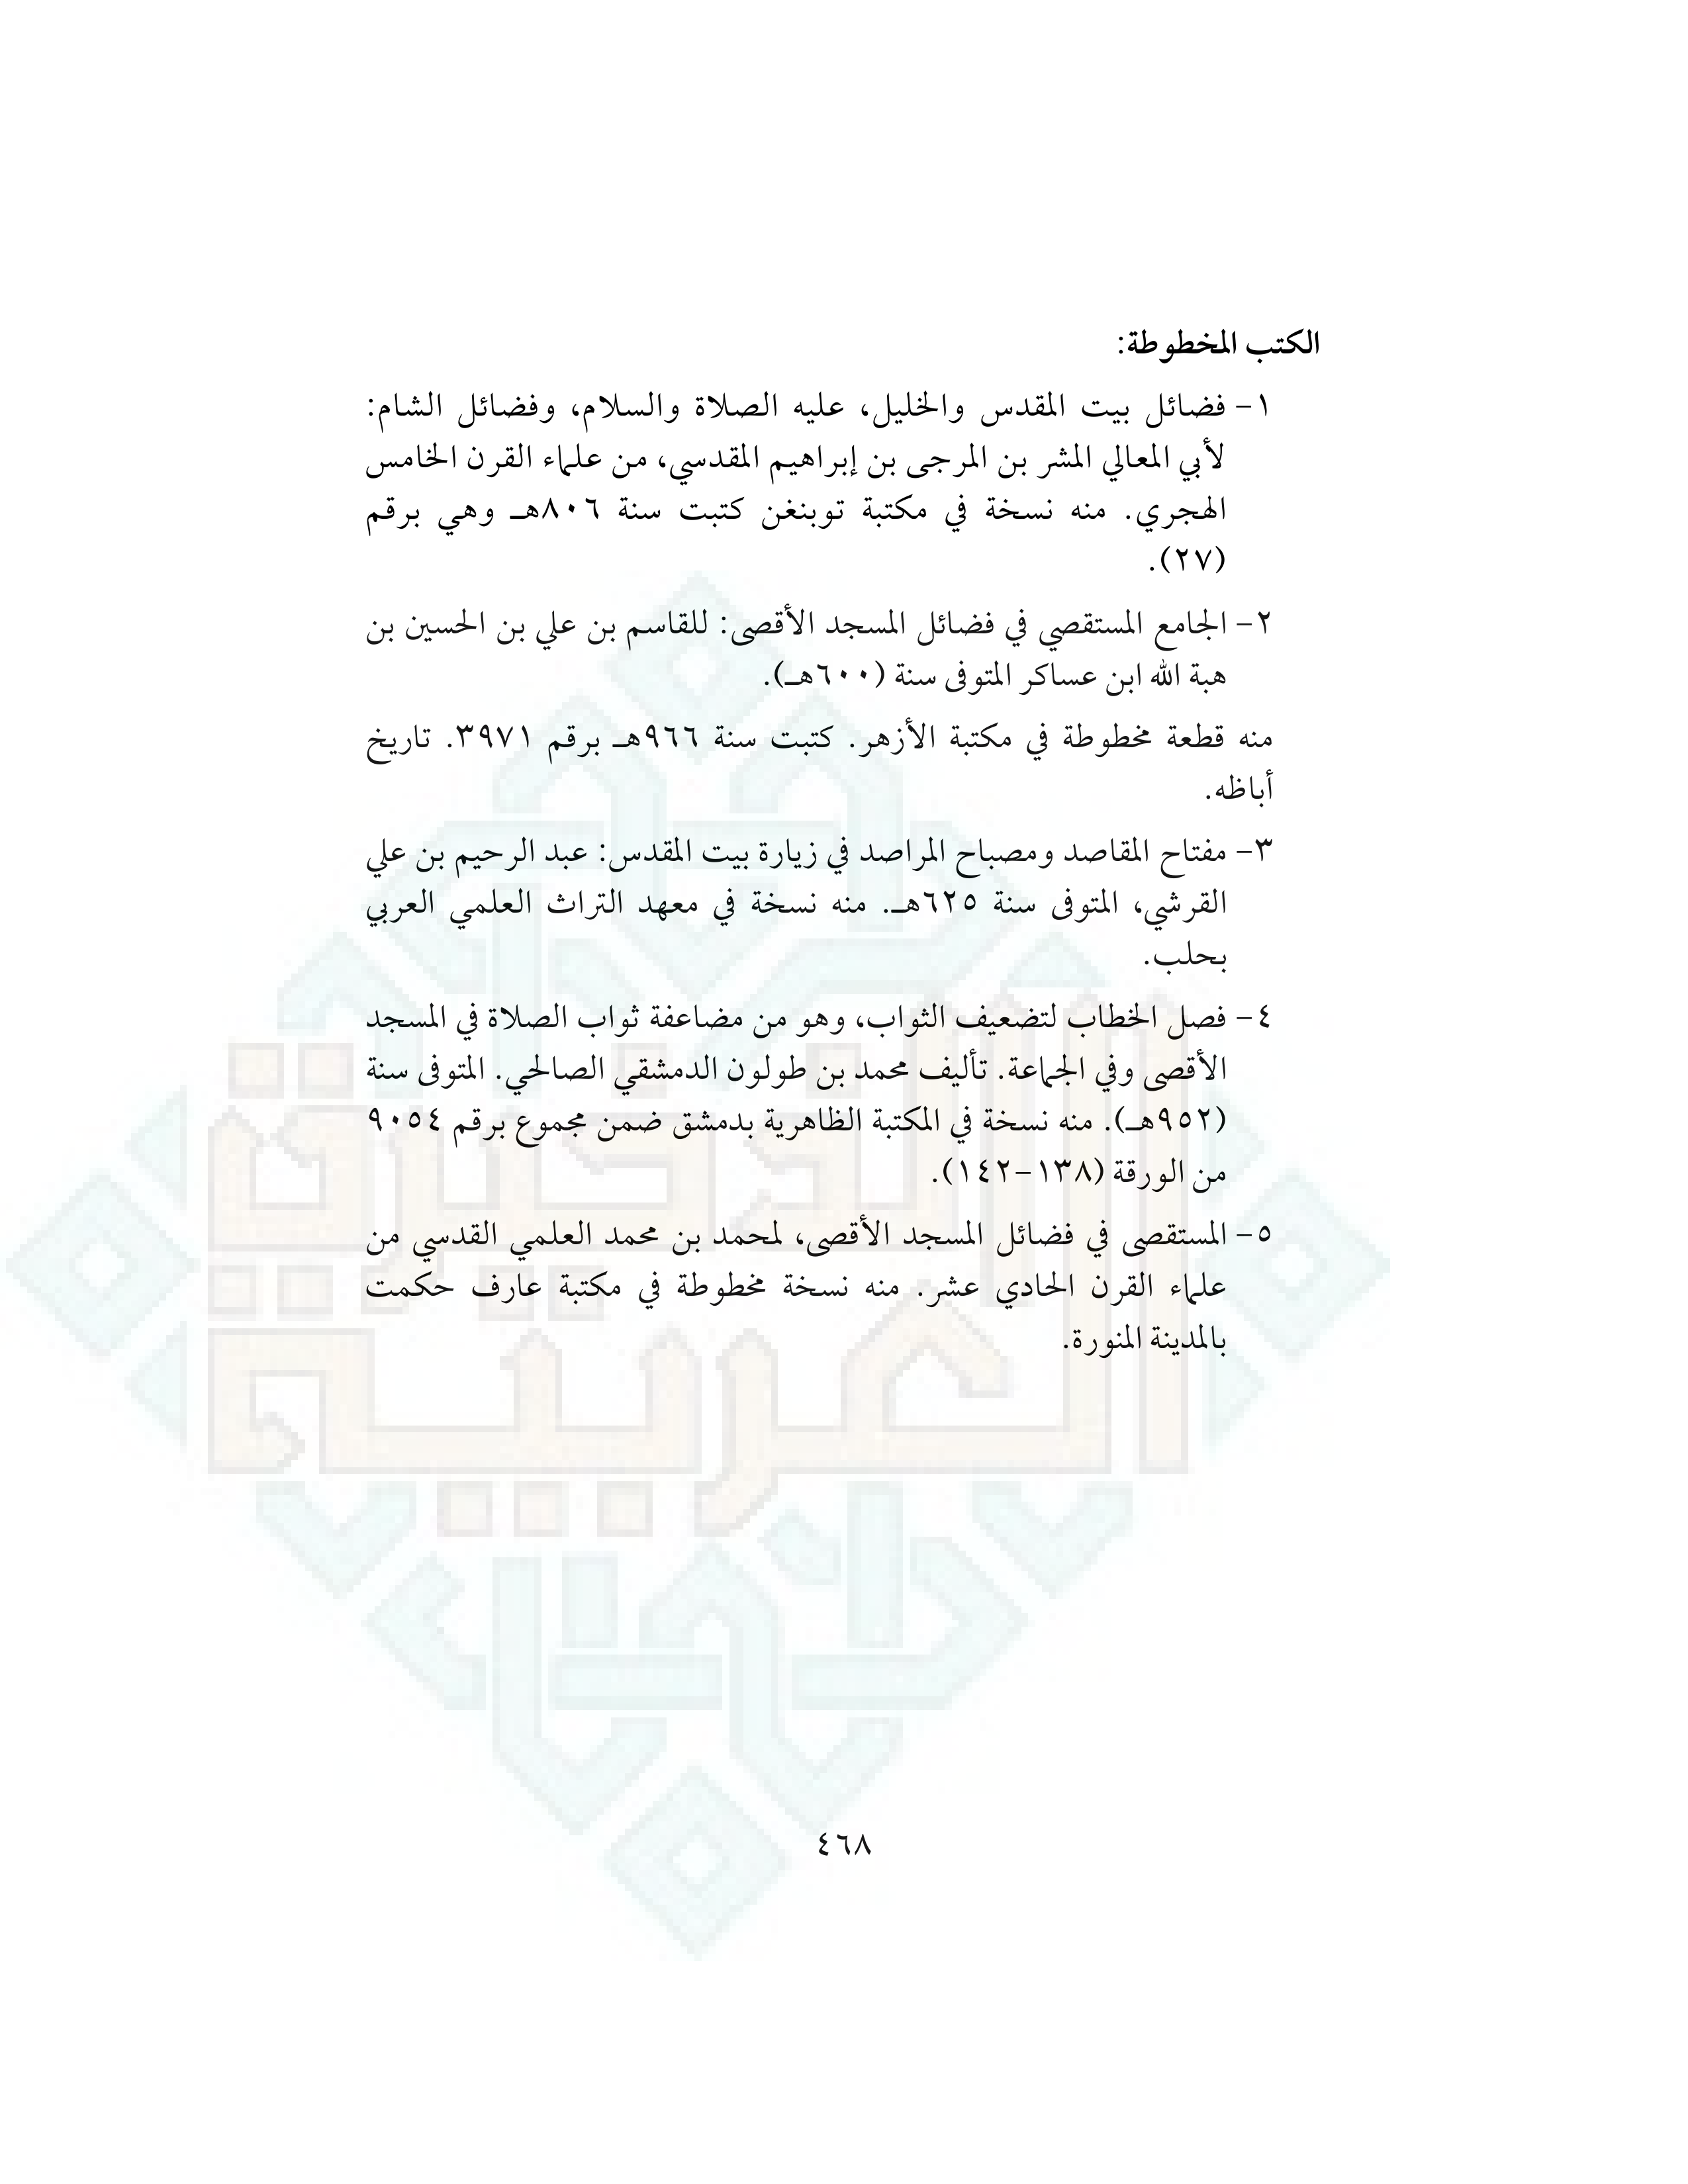 الكتب المخطوطة:
١- فضائل بيت المقدس والخليل، عليه الصلاة والسلام، وفضائل الشام:
لأبي المعالي المشر بن المرجى بن إبراهيم المقدسي، من علماء القرن الخامس
الهجري. منه نسخة في مكتبة توبنغن كتبت سنة ٨٠٦هـ وهي برقم
(٢٧).
٢- الجامع المستقصي في فضائل المسجد الأقصى: للقاسم بن علي بن الحسين بن
هبة الله ابن عساكر المتوفى سنة (٦٠٠هـ).
منه قطعة مخطوطة في مكتبة الأزهر. كتبت سنة ٩٦٦هـ برقم ٣٩٧١. تاريخ
أباظه.
٣- مفتاح المقاصد ومصباح المراصد في زيارة بيت المقدس: عبد الرحيم بن علي
القرشي، المتوفى سنة ٦٢٥هـ. منه نسخة في معهد التراث العلمي العربي
بحلب.
٤- فصل الخطاب لتضعيف الثواب، وهو من مضاعفة ثواب الصلاة في المسجد
الأقصى وفي الجماعة. تأليف محمد بن طولون الدمشقي الصالحي. المتوفى سنة
(٩٥٢هـ). منه نسخة في المكتبة الظاهرية بدمشق ضمن مجموع برقم ٩٠٥٤
من الورقة (١٣٨-١٤٢).
٥- المستقصى في فضائل المسجد الأقصى، لمحمد بن محمد العلمي القدسي من
علماء القرن الحادي عشر. منه نسخة مخطوطة في مكتبة عارف حكمت
بالمدينة المنورة.
الذخيرة
العربية
٤٦٨